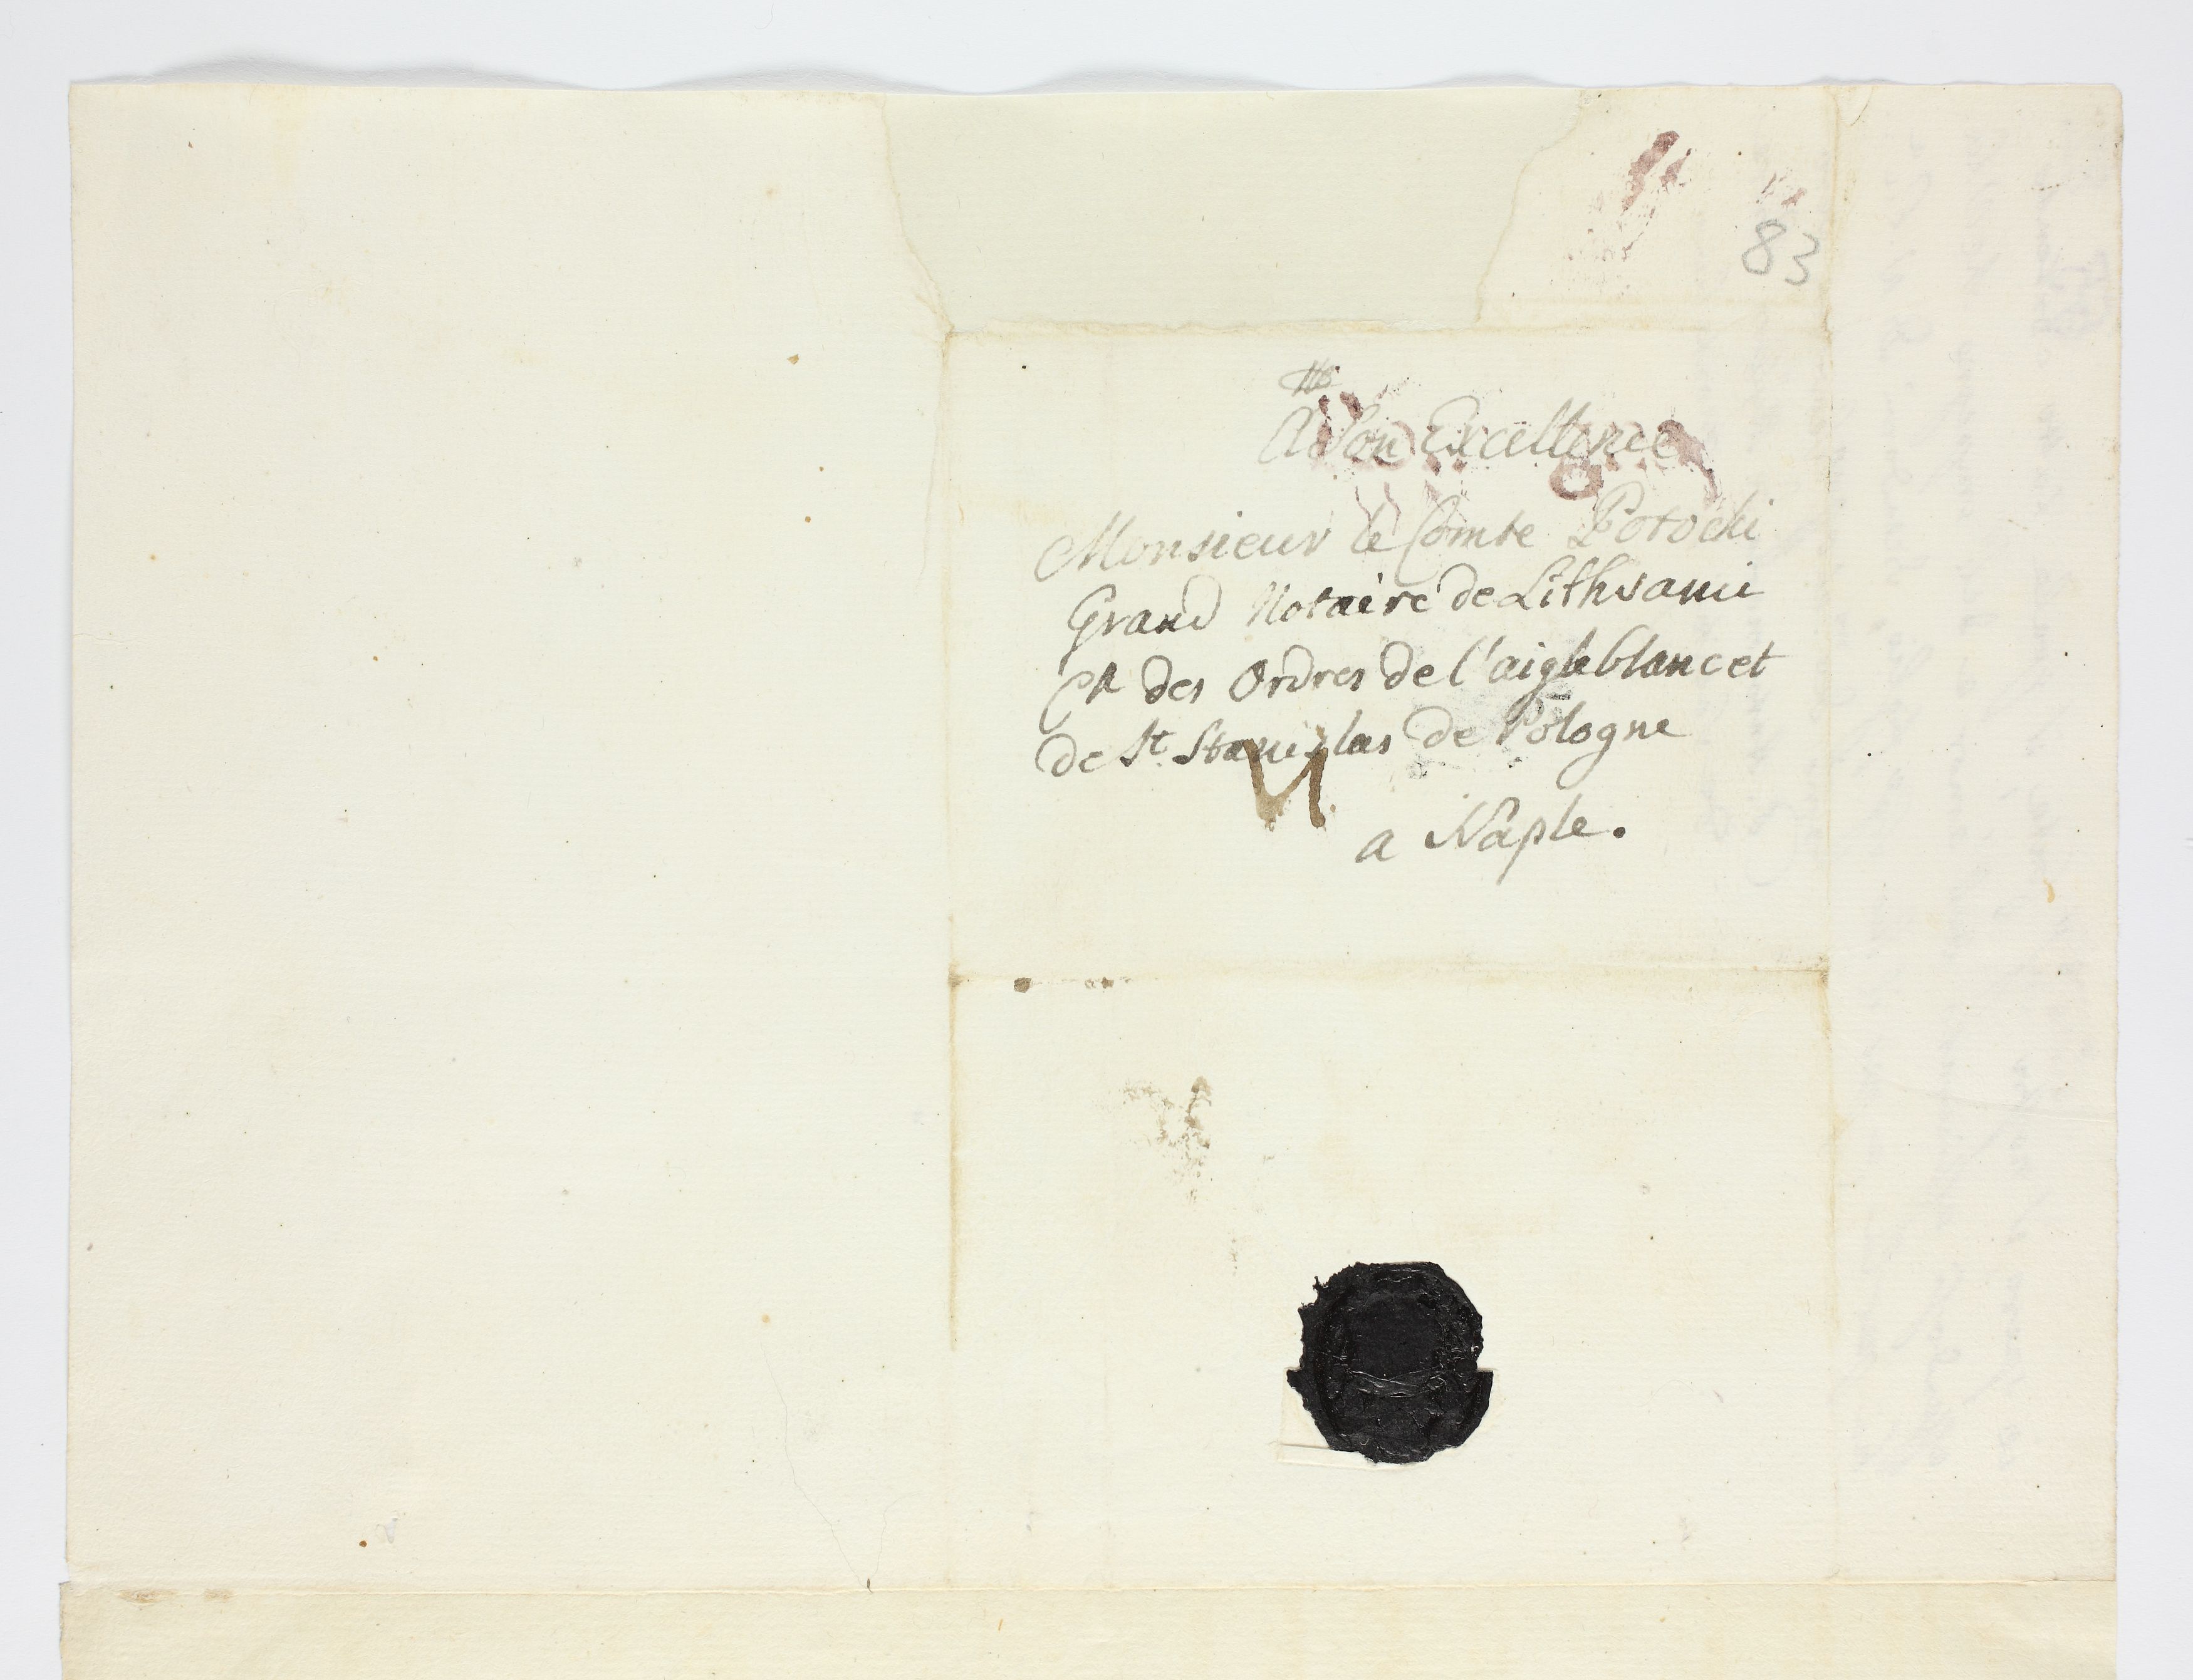 83
A Son Excellence
Monsieur le Comte Potocki
Grand Notaire de Lithvanie
Cr des Ordres de l'aigle blanc et
de St Stanislas de Pologne
a Naple.